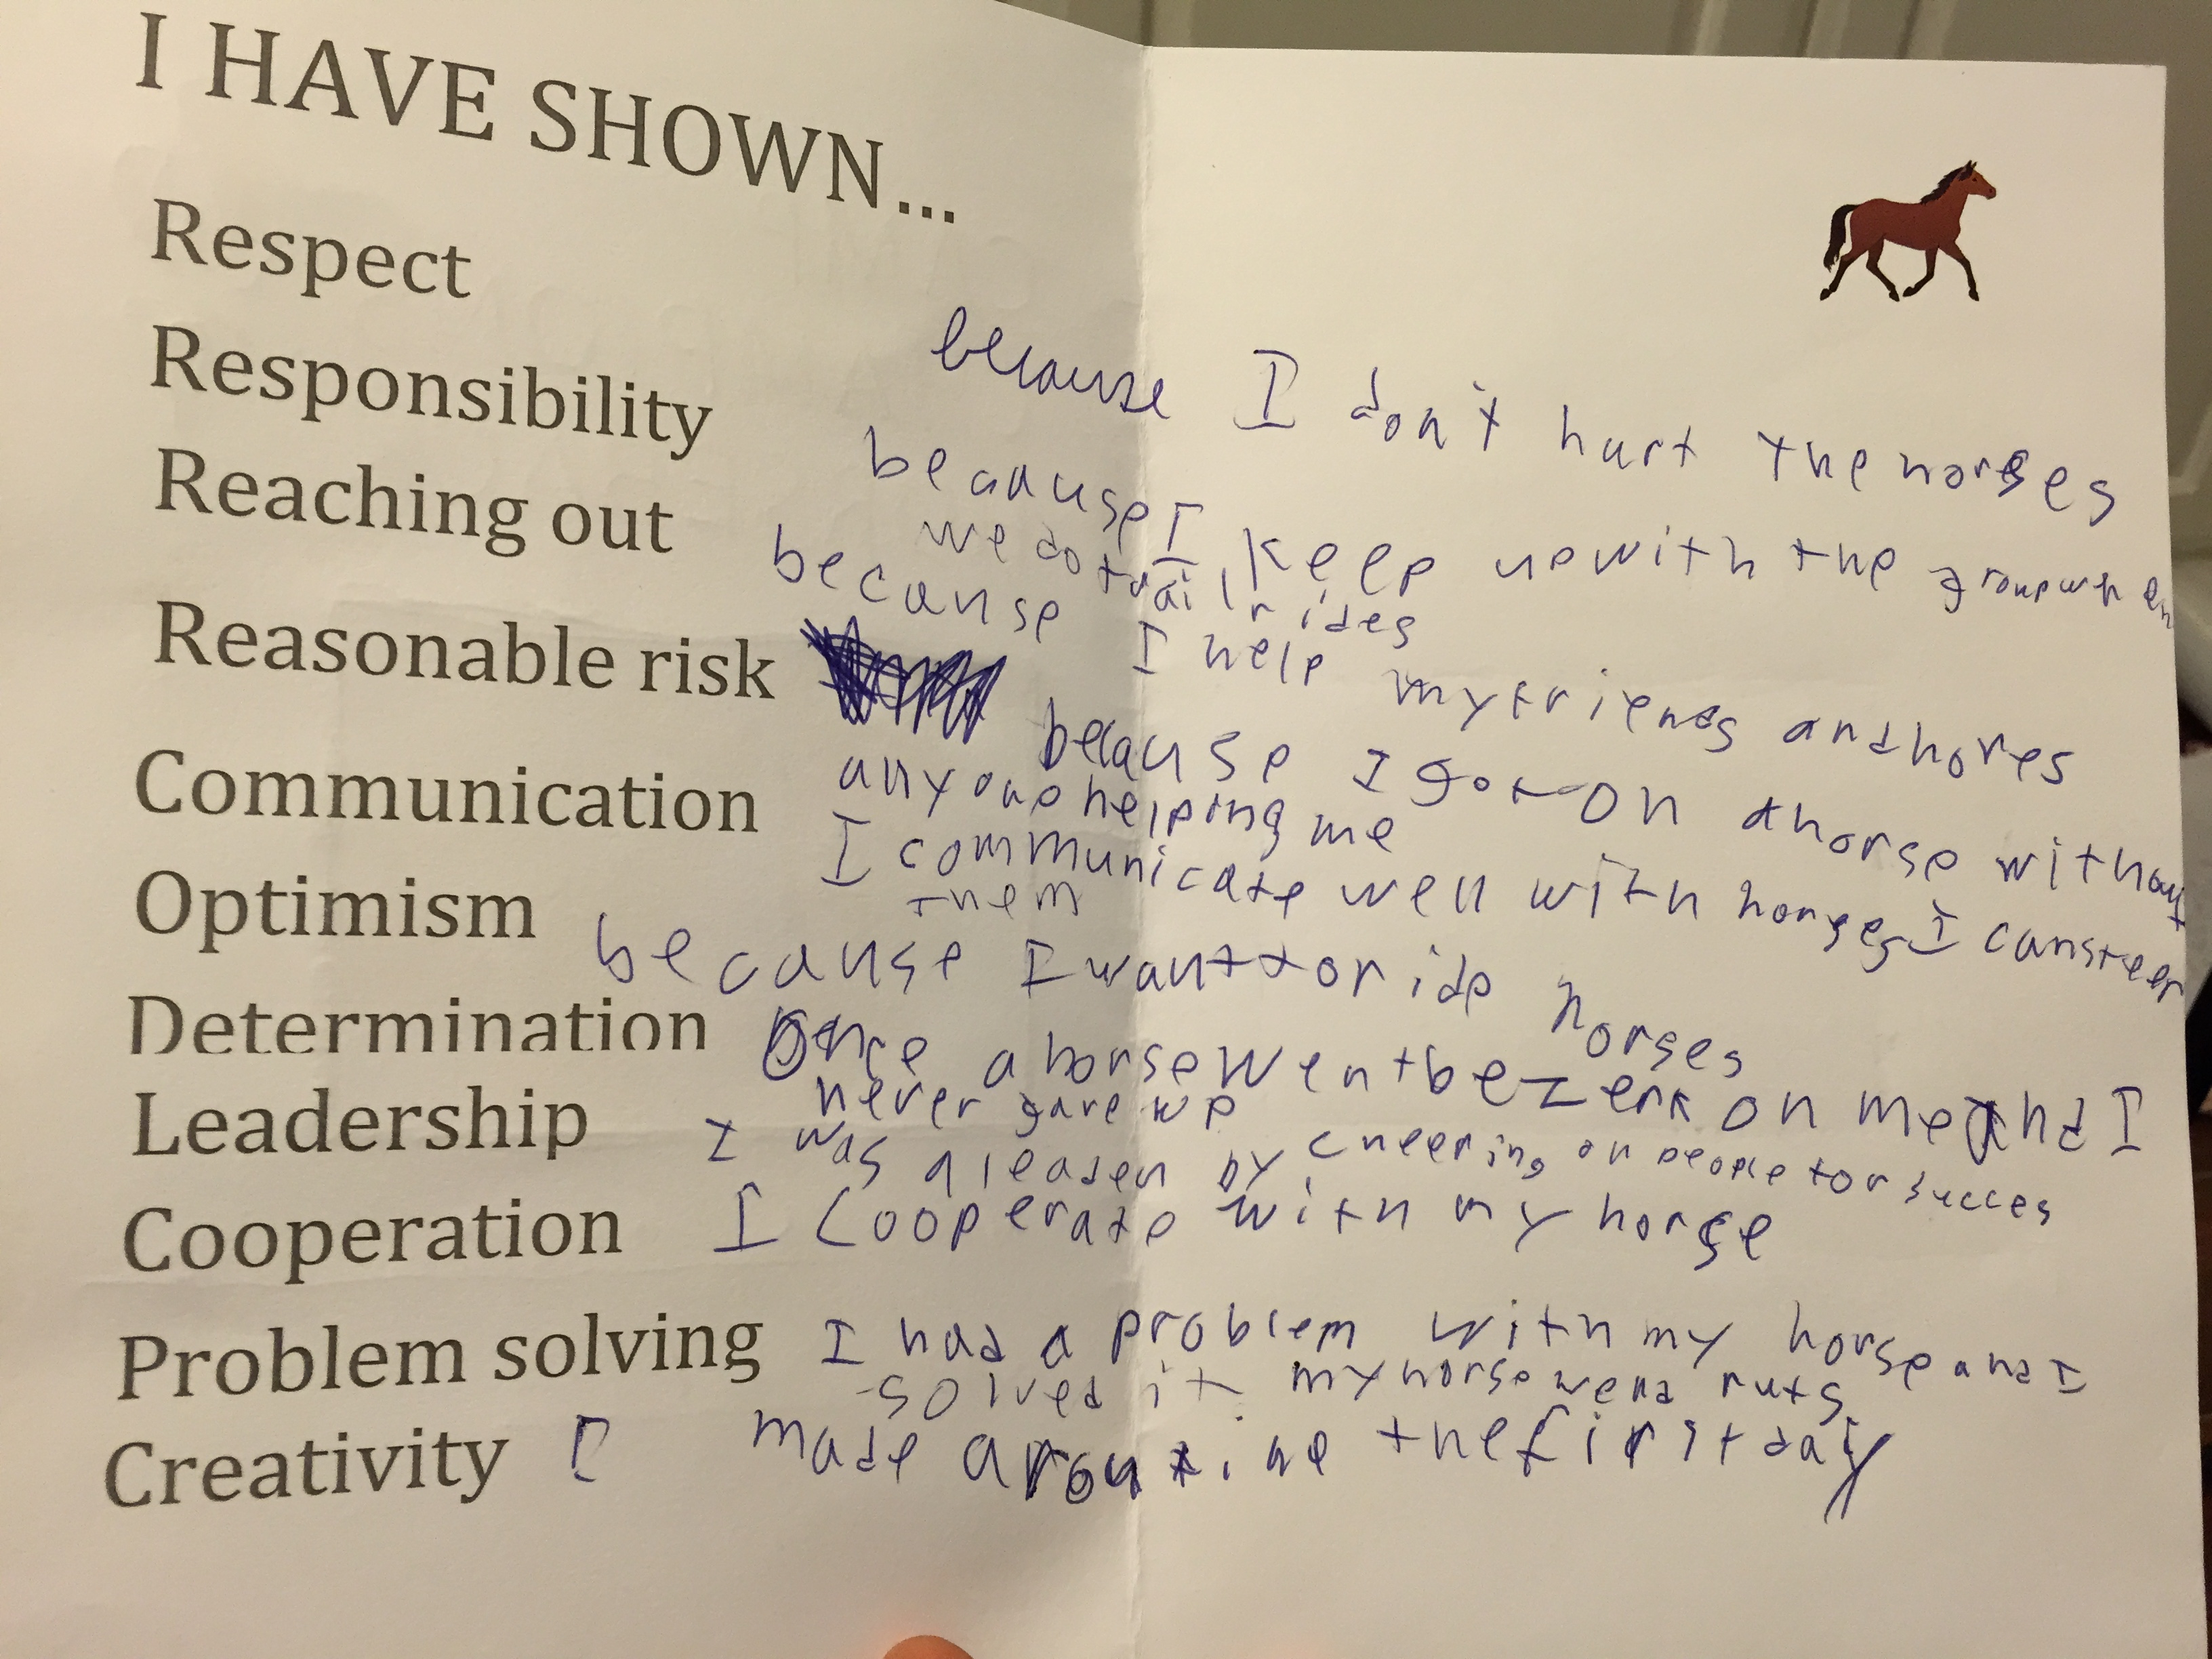 I HAVE SHOWN...
Respect
because I don't hurt the horses
Responsibility
because I keep up with the group when
we do trail rides
Reaching out
because I help my friends and hores
Reasonable risk
because I got on a horse without
anyone helping me
Communication
I communicate well with horses I can steer
them
Optimism
because I want to ride horses
Determination
Once a horse went bezerk on me and I
never gave up
Leadership
I was a leader by cheering on people for succes
Cooperation
I Cooperate with my horse
Problem solving
I had a problem with my horse and I
solved it my horse went nuts
Creativity
I made a routine the first day